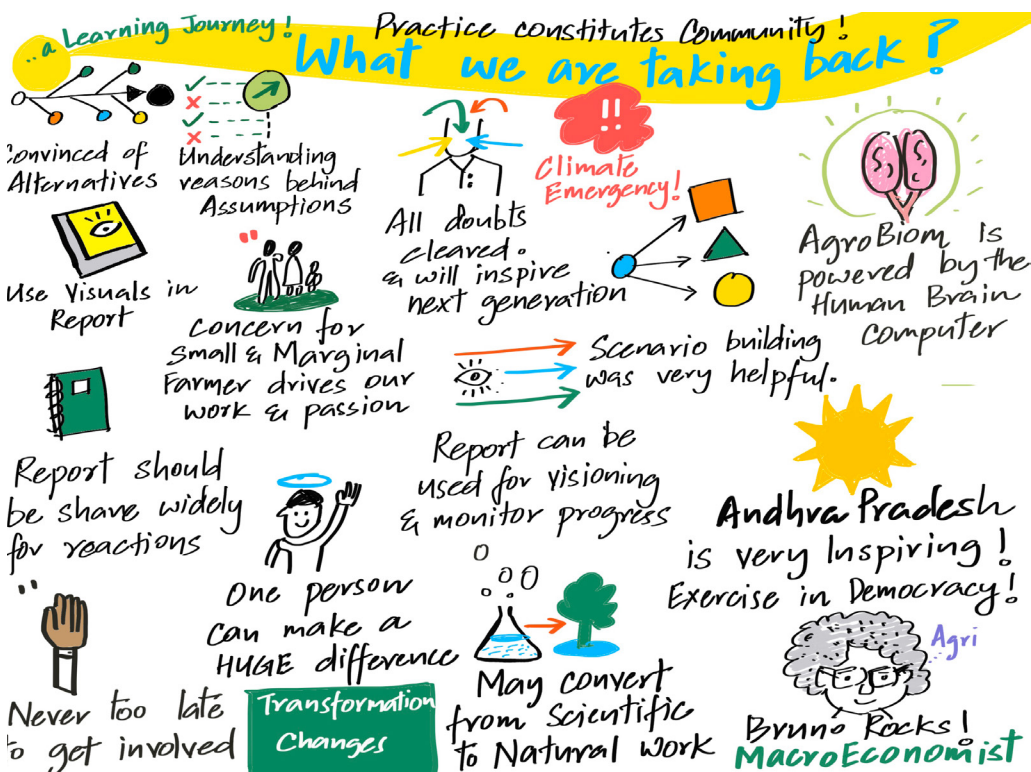 ...a Learning Journey!
Practice constitutes Community!
What we are taking back?
Convinced of
Alternatives
Understanding
reasons behind
Assumptions
All doubts
cleared.
& will inspire
next generation
!!
Climate
Emergency!
AgroBiom is
powered by the
Human Brain
Computer
Use Visuals in
Report
"
Concern for
Small & Marginal
Farmer drives our
work & passion
Scenario building
was very helpful.
Report should
be share widely
for reactions
One person
can make a
HUGE difference
Report can be
used for visioning
& monitor progress
Andhra Pradesh
is very Inspiring!
Exercise in Democracy!
"
Never too late
to get involved
Transformation
Changes
May convert
from Scientific
to Natural work
Agri
Bruno Rocks!
MacroEconomist